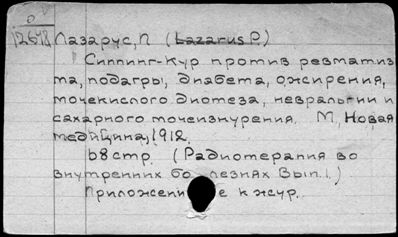 12648 Лазарус, П (Lazarus P.)
Сиппинг-Кур против ревматиз
ма, подагры, диабета, ожирения,
мочекислого диотеза, невралгии и
сахарного мочеизнурения. М, Новая
медицина, 1912.
68 стр. (Радиотерапия во
внутренних бо лезнях Вып. 1.)
Приложени е к жур.